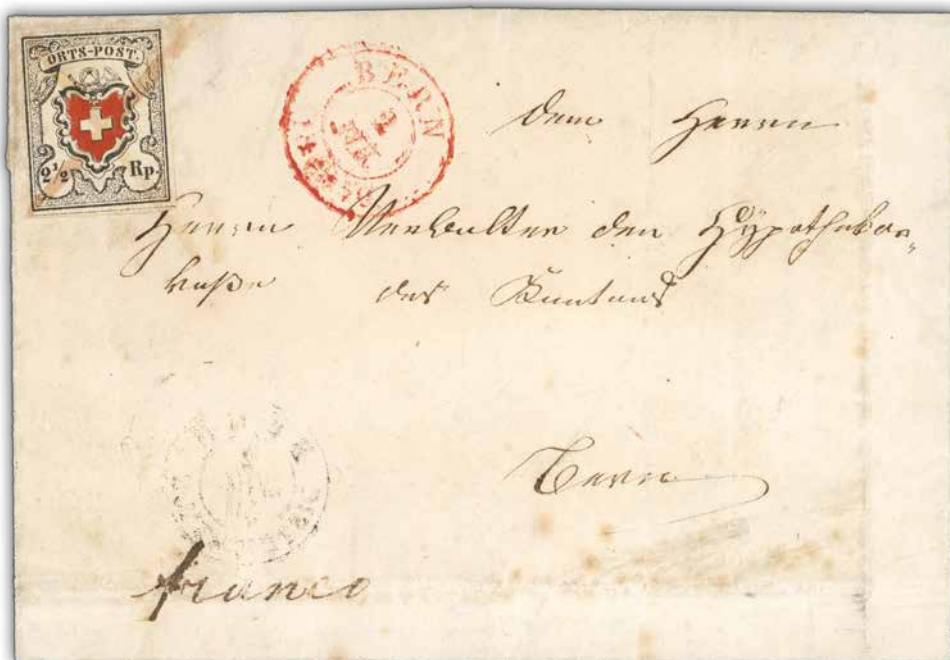 ORTS-POST.
2½ Rp.
BERN
dem Herrn
Herrn Verwalter der Hypothekar-
kaße des Kantons
Bern
franco